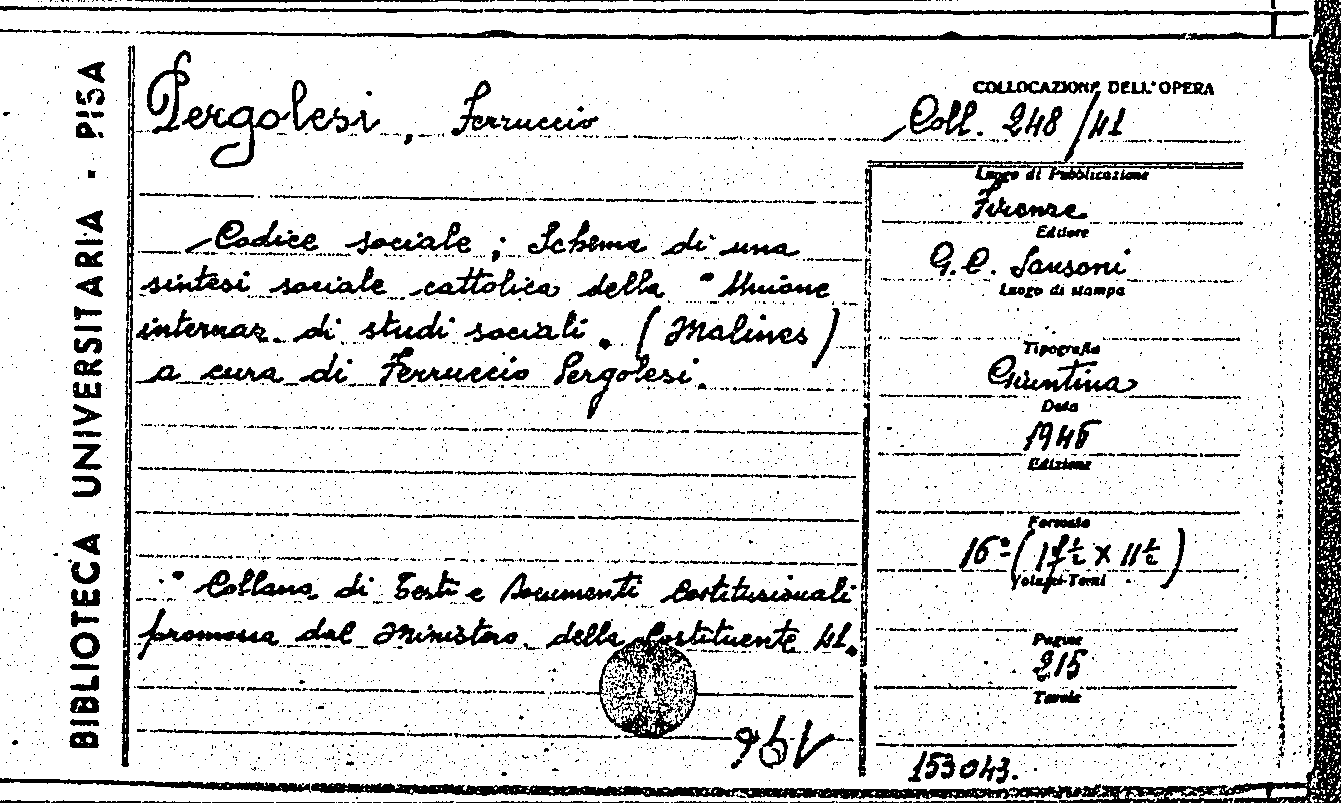 BIBLIOTECA UNIVERSITARIA - PISA
Pergolesi, Ferruccio
COLLOCAZIONE DELL'OPERA
Coll. 248/41
Codice sociale; Schema di una
sintesi sociale cattolica della "Unione
internaz. di studi sociali. (Malines)
a cura di Ferruccio Pergolesi.
" Collana di Testi e Documenti Costituzionali
promossa dal Ministero della Costituente 41.
Luogo di Pubblicazione
Firenze
Editore
G.C. Sansoni
Luogo di stampa
Tipografia
Giuntina
Data
1946
Edizione
Formato
16° (17½ x 11½)
Volumi-Tomi
Pagine
215
Tavole
153043.